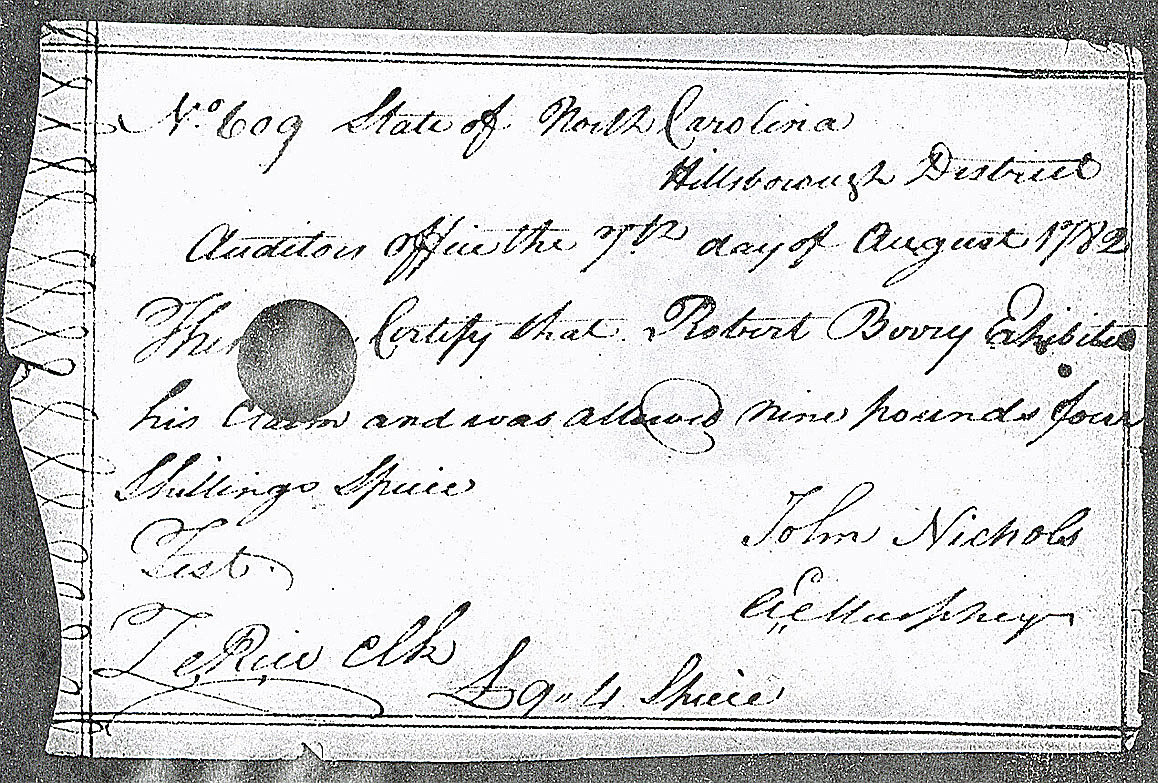 No. 609 State of North Carolina
Hillsborough District
Auditors office the 7th day of August 1782
Certify that Robert Berry Exhibited
his Claim and was allowed nine pounds four
Shillings Specie
Test.
John Nichols
A,, Murphey
Je,, Rice Clk
£9,, 4 Specie